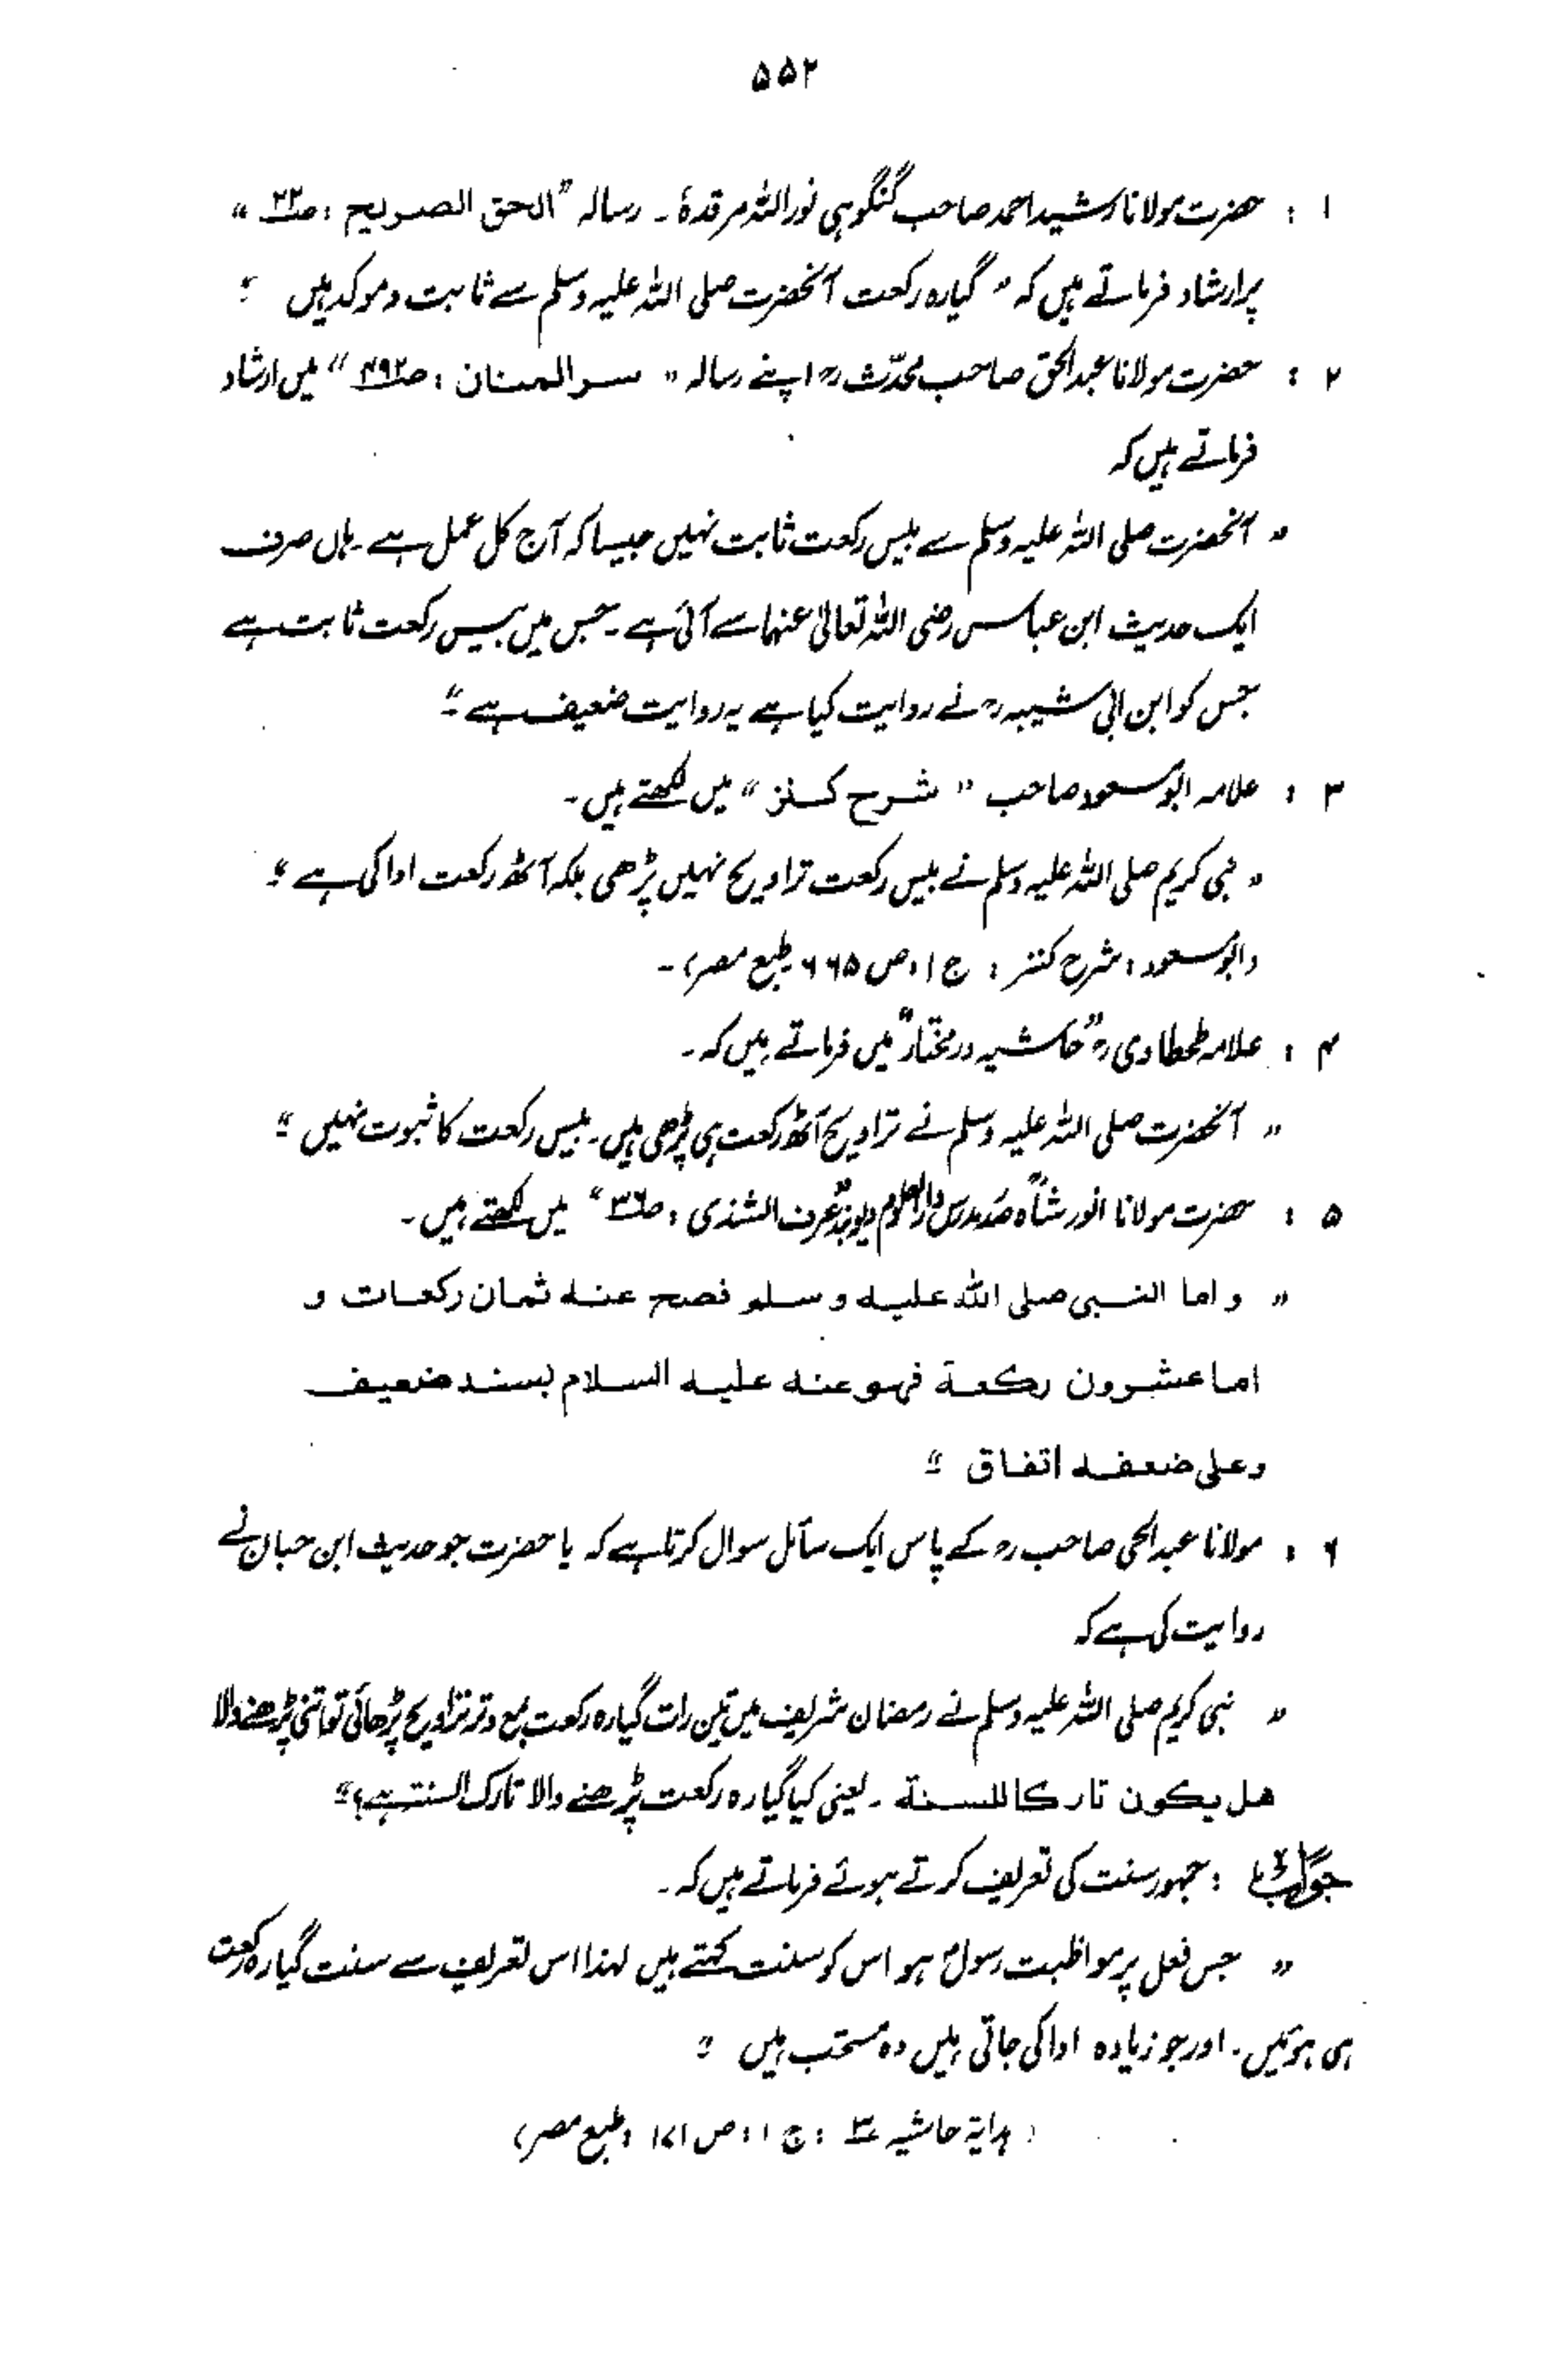 ۵۵۲
۱ : حضرت مولانا رشید احمد صاحب گنگوہی نور اللہ مرقدہٗ ۔ رسالہ "الحق الصریح ، صـ۲۲"
پر ارشاد فرماتے ہیں کہ "گیارہ رکعت آنحضرت صلی اللہ علیہ وسلم سے ثابت و موکد ہیں"
۲ : حضرت مولانا عبدالحق صاحب محدّثؒ اپنے رسالہ "سر المنان ، صـ۴۹۲" میں ارشاد
فرماتے ہیں کہ
"آنحضرت صلی اللہ علیہ وسلم سے بیس رکعت ثابت نہیں جیسا کہ آج کل عمل ہے ۔ ہاں صرف
ایک حدیث ابن عباس رضی اللہ تعالیٰ عنہما سے آئی ہے ۔ جس میں بیس رکعت ثابت ہے
جس کو ابن ابی شیبہؒ نے روایت کیا ہے یہ روایت ضعیف ہے ۔"
۳ : علامہ ابو سعود صاحب "شرح کنز" میں لکھتے ہیں ۔
"نبی کریم صلی اللہ علیہ وسلم نے بیس رکعت تراویح نہیں پڑھی بلکہ آٹھ رکعت ادا کی ہے"
(ابو سعود ، شرح کنز ، ج ۱ ، ص ۶۶۵ طبع مصر) ۔
۴ : علامہ طحطاویؒ "حاشیہ در مختار" میں فرماتے ہیں کہ ۔
"آنحضرت صلی اللہ علیہ وسلم نے تراویح آٹھ رکعت ہی پڑھی ہیں ۔ بیس رکعت کا ثبوت نہیں"
۵ : حضرت مولانا انور شاہؒ صدر مدرس دارالعلوم دیوبند "عرف الشذی ، صـ۳۲۶" میں لکھتے ہیں ۔
"و اما النبی صلی اللہ علیہ و سلم فصح عنه ثمان رکعات و
اما عشرون رکعة فهو عنه علیه السلام بسند ضعیف
وعلی ضعفه اتفاق"
۶ : مولانا عبدالحی صاحبؒ کے پاس ایک سائل سوال کرتا ہے کہ یا حضرت جو حدیث ابن حبان نے
روایت کی ہے کہ
"نبی کریم صلی اللہ علیہ وسلم نے رمضان شریف میں تین رات گیارہ رکعت بمع وتر تراویح پڑھائی تو اتنی پڑھنے والا
هل یکون تارکا للسنة ۔ یعنی کیا گیارہ رکعت پڑھنے والا تارک السنت ہے؟"
جواب : جمہور سنت کی تعریف کرتے ہوئے فرماتے ہیں کہ ۔
"جس فعل پر مواظبت رسولؐ ہو اس کو سنت کہتے ہیں لہذا اس تعریف سے سنت گیارہ رکعت
ہی ہوئیں ۔ اور جو زیادہ ادا کی جاتی ہیں وہ مستحب ہیں"
(ہدایة حاشیہ ۳ ، ج ۱ ، ص ۱۷۱ ، طبع مصر)